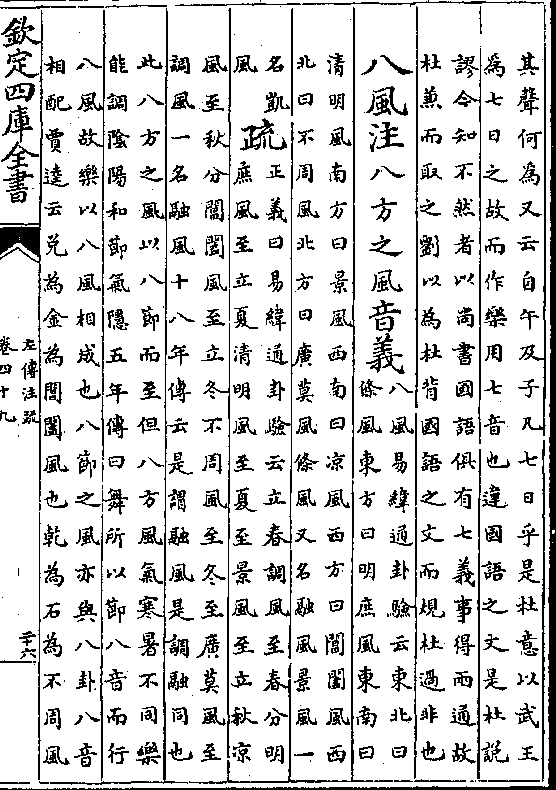 其聲何為又云自午及子凡七日乎是杜意以武王
為七日之故而作樂用七音也違國語之文是杜說
謬今知不然者以尚書國語俱有七義事得兩通故
杜兼而取之劉以為杜背國語之文而規杜過非也
八風注八方之風音義八風易緯通卦驗云東北曰
條風東方曰明庶風東南曰
清明風南方曰景風西南曰凉風西方曰閶闔風西
北曰不周風北方曰廣莫風條風又名融風景風一
名凱
風
疏正義曰易緯通卦驗云立春調風至春分明
庶風至立夏清明風至夏至景風至立秋凉
風至秋分閶闔風至立冬不周風至冬至廣莫風至
調風一名融風十八年傳云是謂融風是調融同也
此八方之風以八節而至但八方風氣寒暑不同樂
能調陰陽和節氣隱五年傳曰舞所以節八音而行
八風故樂以八風相成也八節之風亦與八卦八音
相配賈逵云兑為金為閶闔風也乾為石為不周風
欽定四庫全書
左傳注疏
卷四十九
二十六